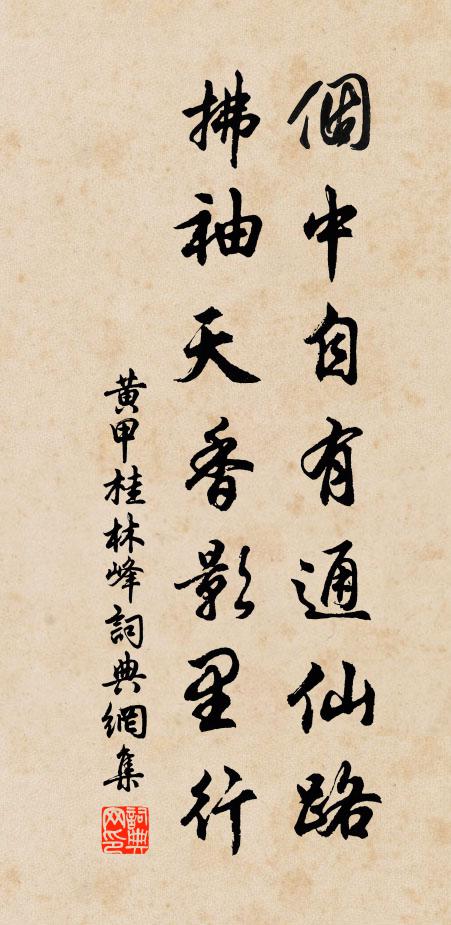 個中自有通仙路
拂袖天香影里行
黃甲桂林峰詞典網集
詞典網印